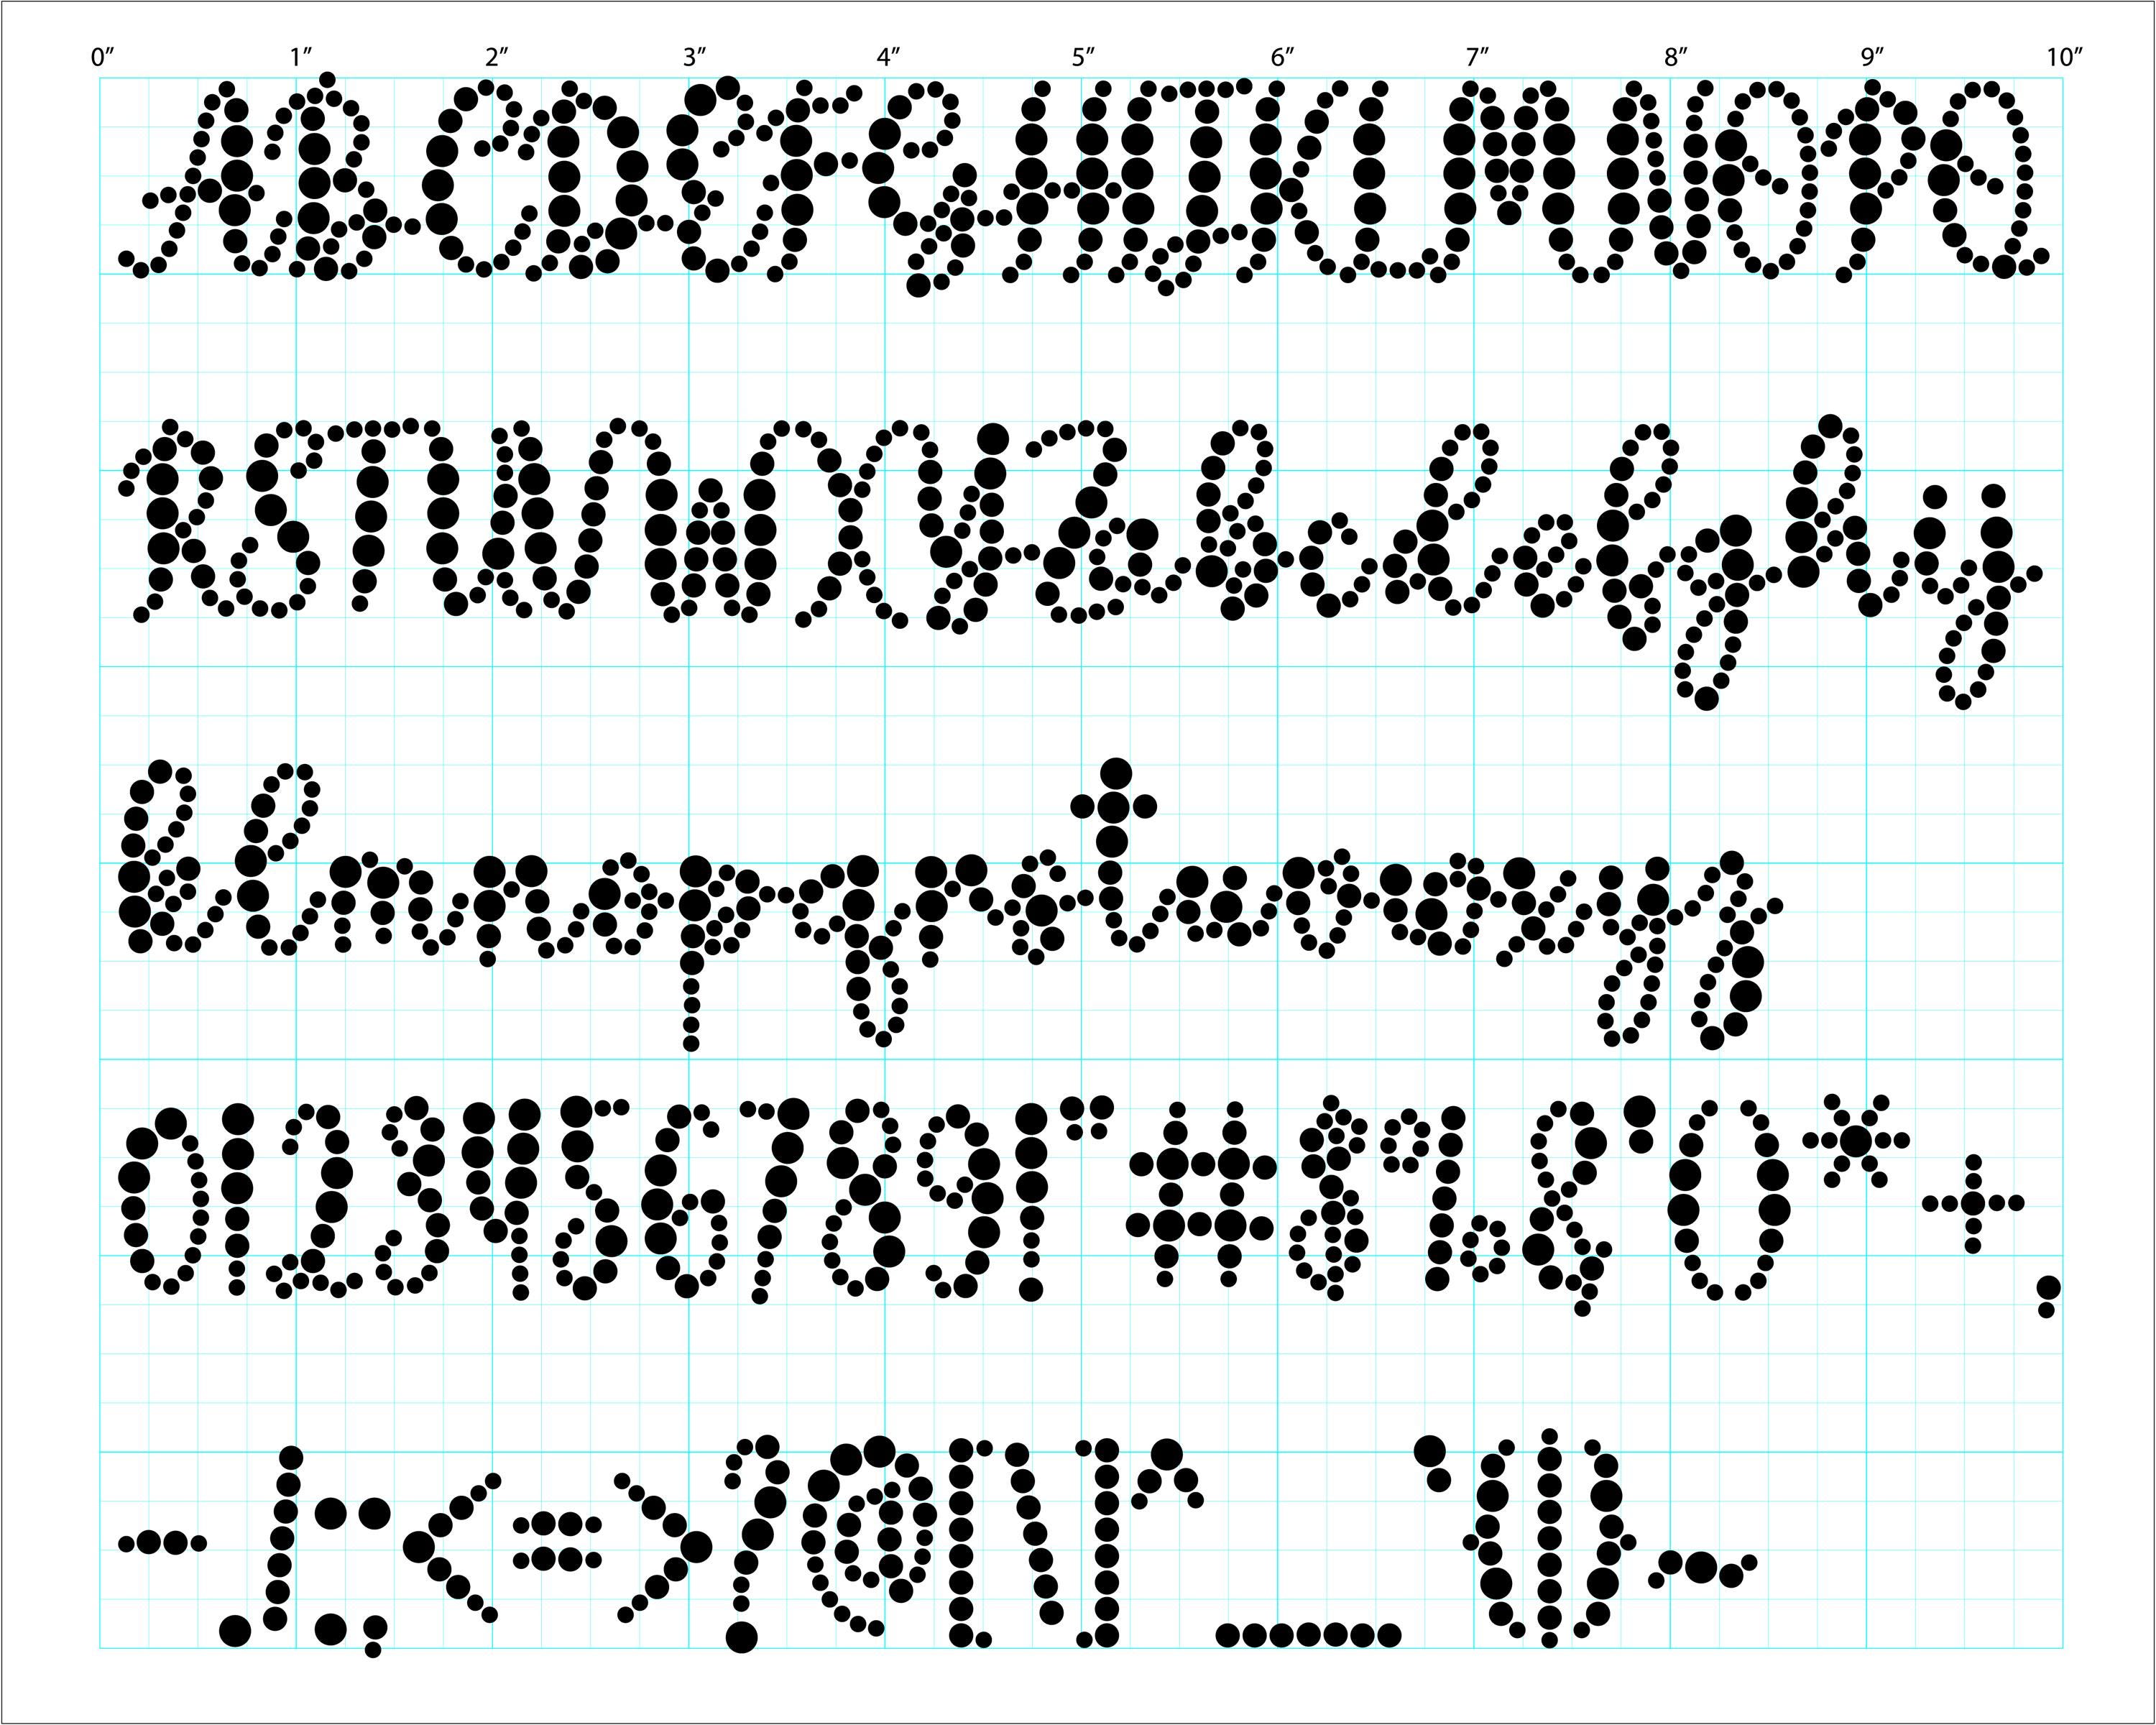 0″ 1″ 2″ 3″ 4″ 5″ 6″ 7″ 8″ 9″ 10″
ABCDEFGHIJKLMNOPQ
RSTUVWXYZabcdefghij
klmnopqrstuvwxyz
0123456789!"#$%&'()*+,
-./:;<=>?@[\]^_`{|}~